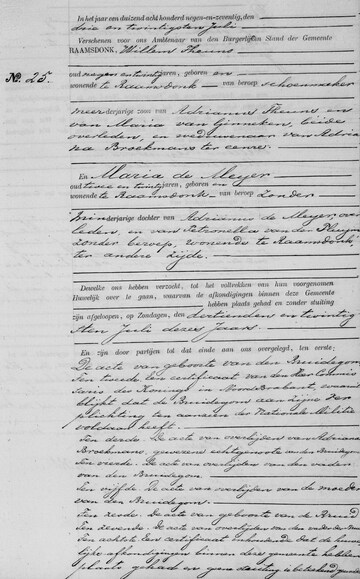 In het jaar een duizend acht honderd negen-en-zeventig, den
drie en twintigsten Juli
Verschenen voor ons Ambtenaar van den Burgerlijken Stand der Gemeente
RAAMSDONK, Willem Theuns
No. 25.
oud negen en twintig jaren, geboren en
wonende te Raamsdonk van beroep schoenmaker
meerderjarige zoon van Adrianus Theuns en
van Maria van Ginneken, beide
overleden, en weduwnaar van Adria
na Broekmans ter eenre.
En Maria de Meyer
oud twee en twintig jaren, geboren en
wonende te Raamsdonk van beroep zonder
minderjarige dochter van Adrianus de Meyer, over
leden, en van Petronella van der
zonder beroep, wonende te Raamsdonk,
ter andere zijde.
Dewelke ons hebben verzocht, tot het voltrekken van hun voorgenomen
Huwelijk over te gaan, waarvan de afkondigingen binnen deze Gemeente
hebben plaats gehad en zonder stuiting
zijn afgeloopen, op Zondagen, den dertienden en twintig
sten Juli dezes jaars.
En zijn door partijen tot dat einde aan ons overgelegd, ten eerste:
De acte van geboorte van den Bruidegom
Ten tweede. Een certificaat van den Heer Commis
saris des Konings in Noord Brabant, waaruit
blijkt dat de Bruidegom aan zijne ver
plichting ten aanzien der Nationale Militie
voldaan heeft.
Ten derde. De acte van overlijden van Adriana
Broekmans, gewezene echtgenoote van den Bruidegom
Ten vierde. De acte van overlijden van den vader
van den Bruidegom.
Ten vijfde. De acte van overlijden van de moeder
van den Bruidegom.
Ten zesde. De acte van geboorte van de Bruid
Ten zevende. De acte van overlijden van den vader der Bruid
Ten achtste. Een certificaat inhoudende dat de huwe
lijks afkondigingen binnen deze gemeente hebben
plaats gehad en geene stuiting is bekend